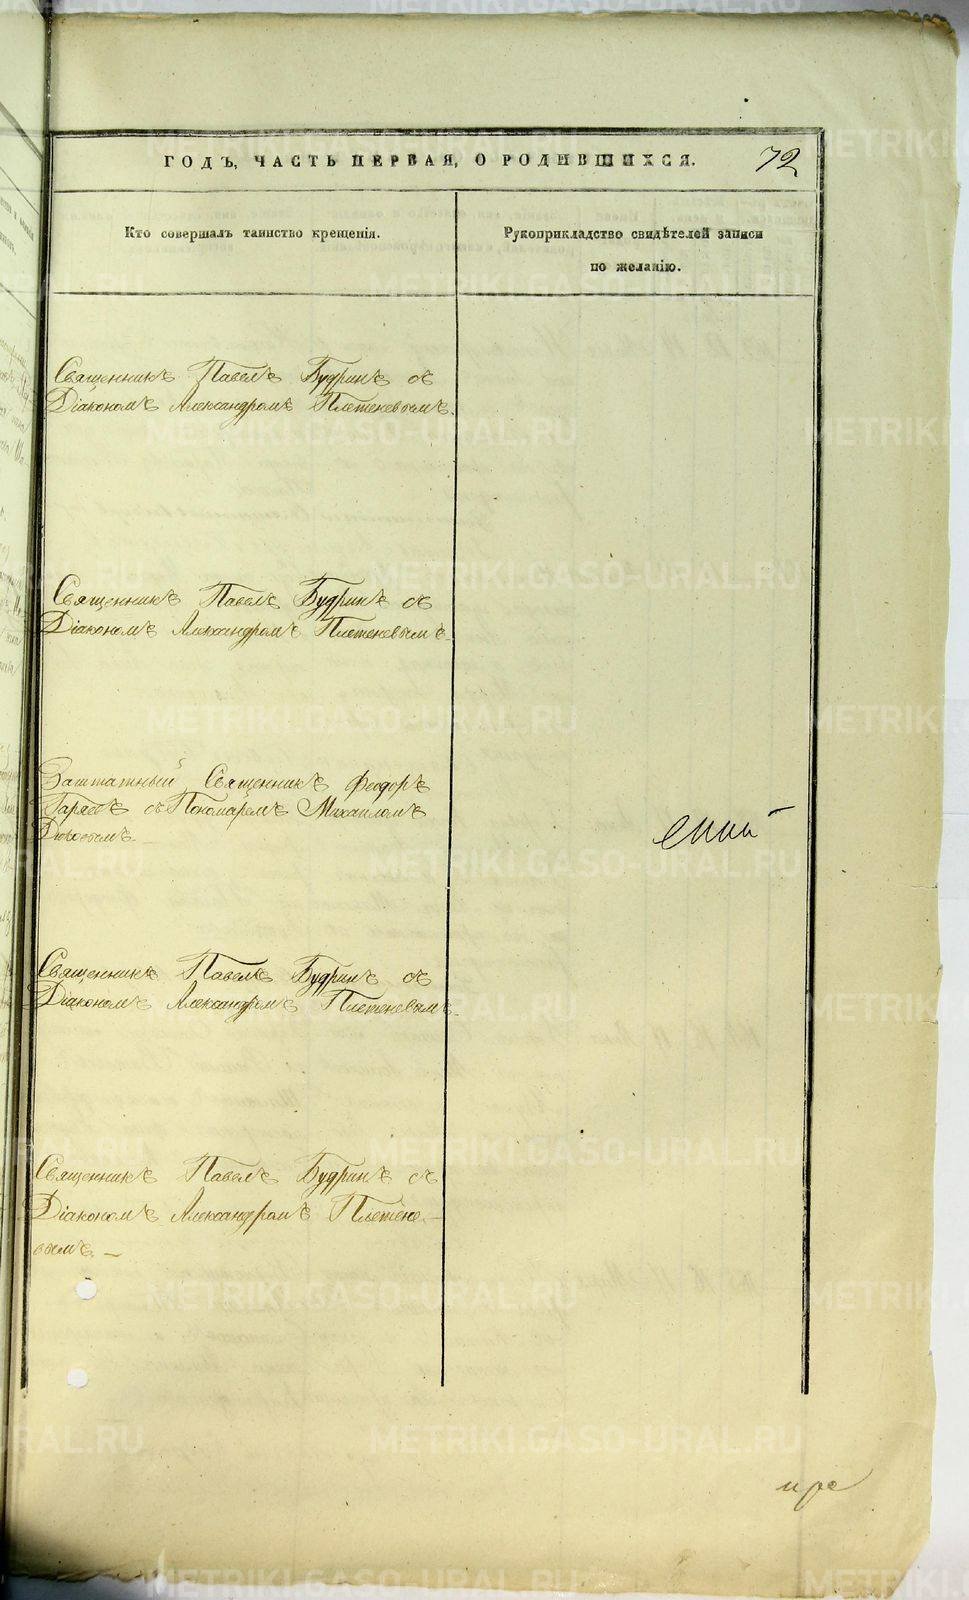 ГОДЪ, ЧАСТЬ ПЕРВАЯ, О РОДИВШИХСЯ. 72
Кто совершалъ таинство крещенія.
Рукоприкладство свидѣтелей записи
по желанію.
Священникъ Павелъ Будринъ съ
Діакономъ Александромъ Плетеневымъ.
Священникъ Павелъ Будринъ съ
Діакономъ Александромъ Плетеневымъ.
Заштатный Священникъ Феодоръ
съ Пономаремъ Михаиломъ
Священникъ Павелъ Будринъ съ
Діакономъ Александромъ Плетеневымъ.
Священникъ Павелъ Будринъ съ
Діакономъ Александромъ Плетене-
вымъ.
METRIKI.GASO-URAL.RU